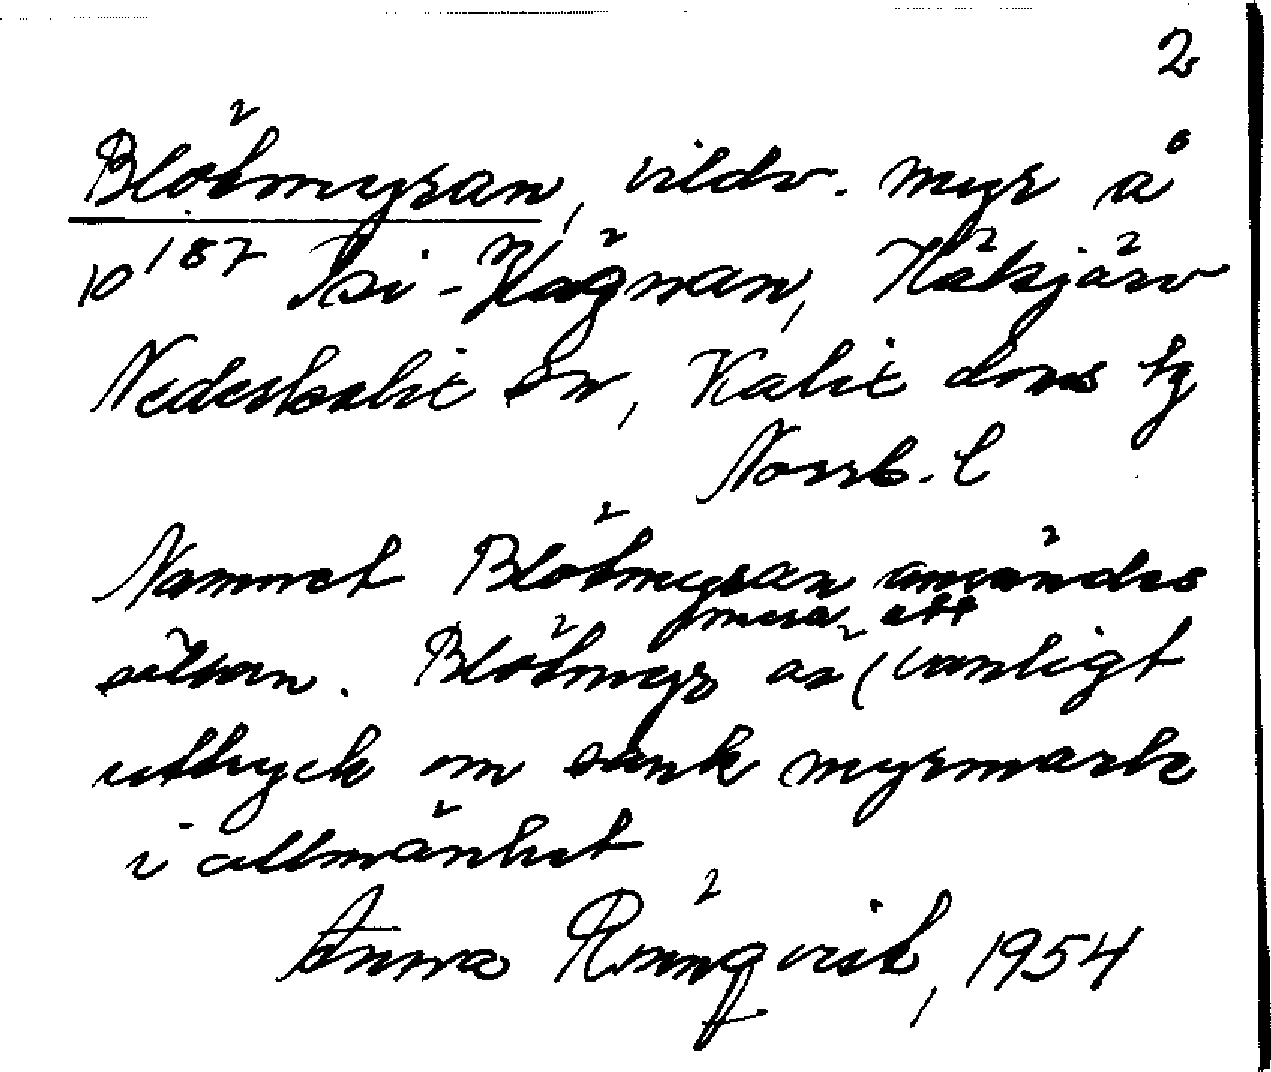 2
Blötmyran, vildv. myr å
10 187 Isi-Vägman, Kälsjärv
Nederkalix sn, Kalix doms tg
Norrb. l
Namnet Blötmyran användes
sällan. Blötmyr är mera ett vanligt
uttryck om sank myrmark
i allmänhet
Anna Rönnqvist, 1954